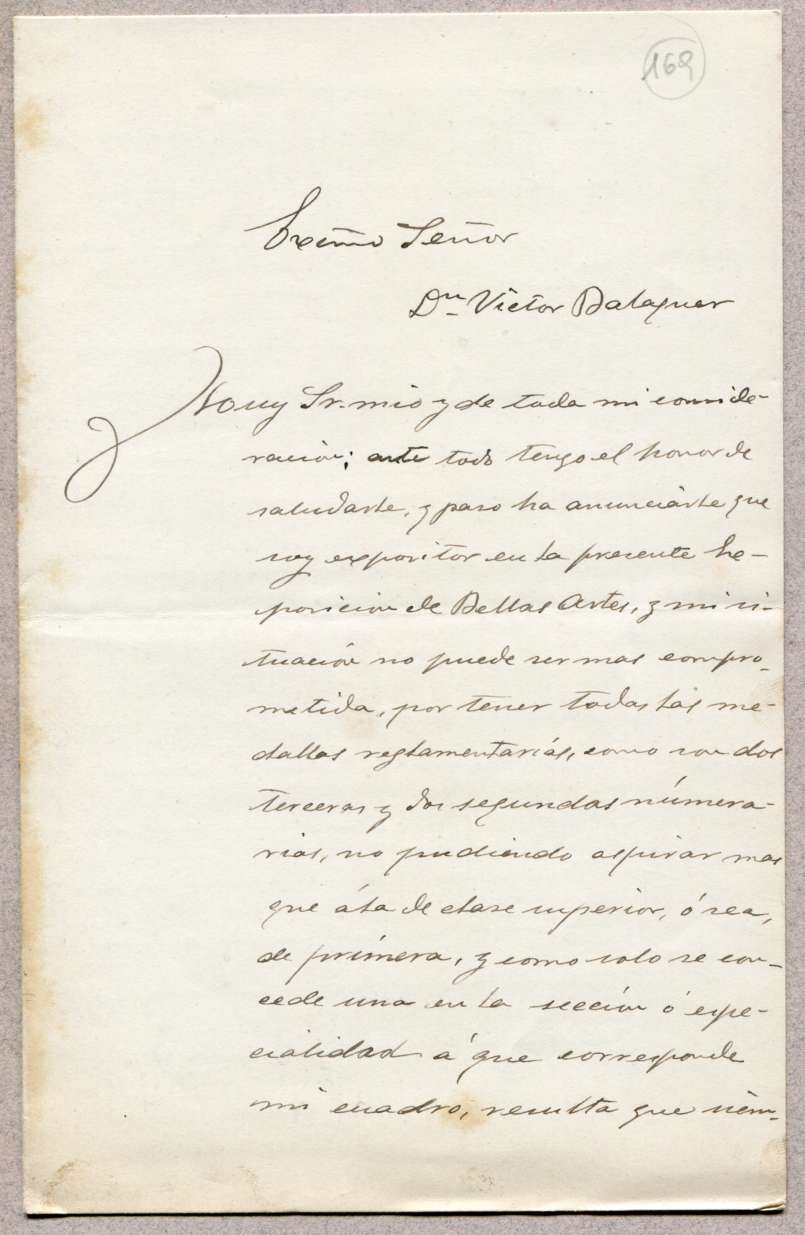 169
Exc̃mo Señor
Dⁿ Victor Balaguer
Muy Sr. mio y de toda mi conside-
ración; ante todo tengo el honor de
saludarle, y paso ha anunciárle que
soy expositor en la presente he-
posicion de Bellas Artes, y mi si-
tuación no puede ser mas compro-
metida, por tener todas las me-
dallas reglamentarias, como son dos
terceras y dos segundas númera-
rias, no pudiendo aspirar mas
que á la de clase superior, ó sea,
de primera, y como solo se con-
cede una en la sección ó espe-
cialidad á que corresponde
mi cuadro, resulta que siem-